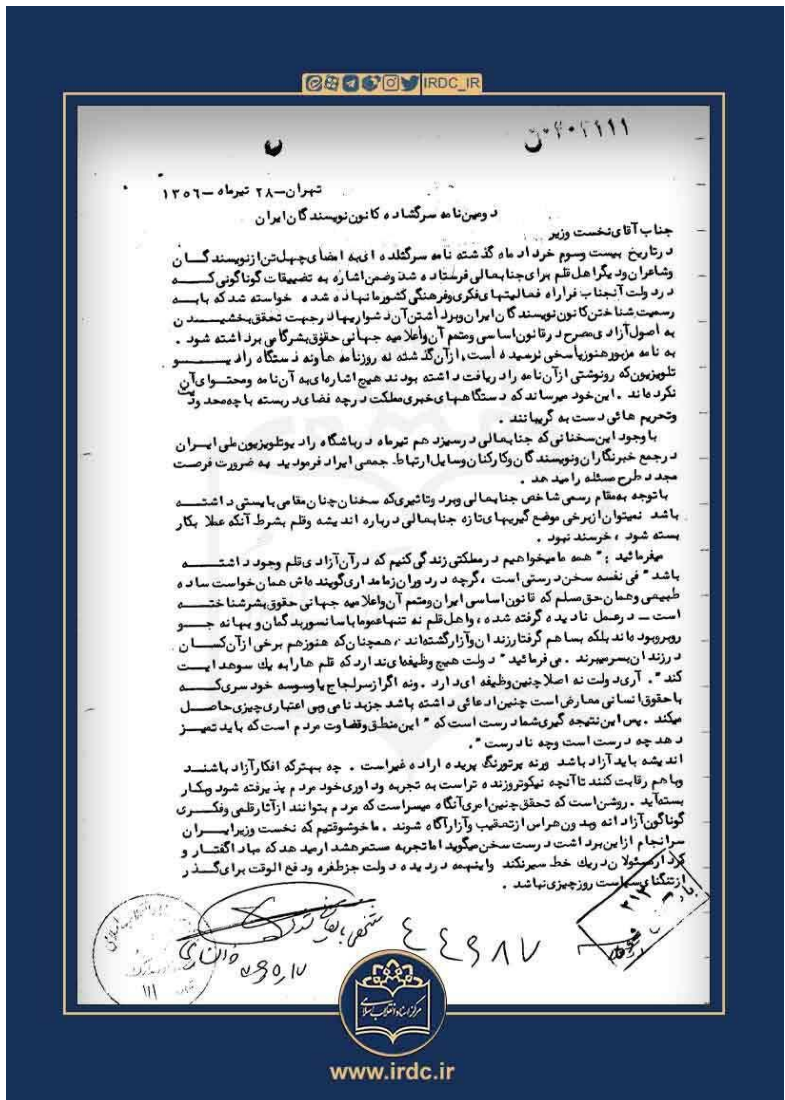 IRDC_IR
تهران - ۲۸ تیرماه - ۱۳۵۶
دومین نامه سرگشاده کانون نویسندگان ایران
جناب آقای نخست وزیر
درتاریخ بیست وسوم خرداد ماه گذشته نامه سرگشاده ای به امضای چهل تن ازنویسندگان
وشاعران ودیگراهل قلم برای جنابعالی فرستاده شد وضمن اشاره به تضییقات گوناگونی که
دردولت آنجناب فراراه فعالیتهای فکری وفرهنگی کشورمانهاده شده خواسته شد که با به
رسمیت شناختن کانون نویسندگان ایران وبرداشتن آن دشواریها درجهت تحقق بخشیدن
به اصول آزادی مصرح درقانون اساسی ومتمم آن واعلامیه جهانی حقوق بشرگامی برداشته شود .
به نامه مزبورهنوزپاسخی نرسیده است، ازآن گذشته نه روزنامه هاونه دستگاه رادیو
تلویزیون که رونوشتی ازآن نامه رادریافت داشته بودند هیچ اشاره ای به آن نامه ومحتوای آن
نکرده اند . این خود میرساند که دستگاههای خبری مملکت درچه فضای دربسته باچه محدودیت
وتحریم هائی دست به گریبانند .
باوجود این سخنانی که جنابعالی درسیزدهم تیرماه درباشگاه رادیوتلویزیون ملی ایران
درجمع خبرنگاران ونویسندگان وکارکنان وسایل ارتباط جمعی ایراد فرمودید به ضرورت فرصت
مجدد طرح مسئله رامیدهد .
باتوجه به مقام رسمی شاخص جنابعالی وبرد وتاثیری که سخنان چنان مقامی بایستی داشته
باشد نمیتوان ازبرخی موضع گیریهای تازه جنابعالی درباره اندیشه وقلم بشرط آنکه عملا بکار
بسته شود ، خرسند نبود .
میفرمائید : " همه مامیخواهیم درمملکتی زندگی کنیم که درآن آزادی قلم وجود داشته
باشد " فی نفسه سخن درستی است ، گرچه دردوران زمامداری گوینده اش همان خواست ساده
طبیعی وهمان حق مسلم که قانون اساسی ایران ومتمم آن واعلامیه جهانی حقوق بشرشناخته
است – درعمل نادیده گرفته شده ، واهل قلم نه تنهاعموما باسانسوربدگمان وبهانه جو
روبروبوده اند بلکه بساهم گرفتارزندان وآزارگشته اند ، همچنان که هنوزهم برخی ازآن کسان
درزندان بسرمیبرند . می فرمائید " دولت هیچ وظیفه ای ندارد که قلم هارابه یك سوهدایت
کند " . آری دولت نه اصلا چنین وظیفه ای دارد . ونه اگرازسرلجاج یاوسوسه خود سری که
باحقوق انسانی معارض است چنین ادعائی داشته باشد جزبدنامی وبی اعتباری چیزی حاصل
میکند . پس این نتیجه گیری شما درست است که " این منطق وقضاوت مردم است که باید تمیز
دهد چه درست است وچه نادرست " .
اندیشه باید آزاد باشد ورنه پرتورنگ پریده اراده غیراست . چه بهترکه افکارآزاد باشند
وباهم رقابت کنند تاآنچه نیکوتروزنده تراست به تجربه وداوری خود مردم پذیرفته شود وبکار
بسته آید . روشن است که تحقق چنین امری آنگاه میسراست که مردم بتوانند ازآثارقلمی وفکری
گوناگون آزادانه وبدون هراس ازتعقیب وآزارآگاه شوند . ماخوشوقتیم که نخست وزیرایران
سرانجام ازاین برداشت درست سخن میگوید اماتجربه مستمرهشدارمیدهد که مباداگفتارو
کردارمسئولان دریك خط سیرنکند واینهمه دردیده دولت جزطفره ودفع الوقت برای گذر
ازتنگنای سیاست روزچیزی نباشد .
۴۴۶۸۷
۱۱۱
مرکز اسناد انقلاب اسلامی
www.irdc.ir